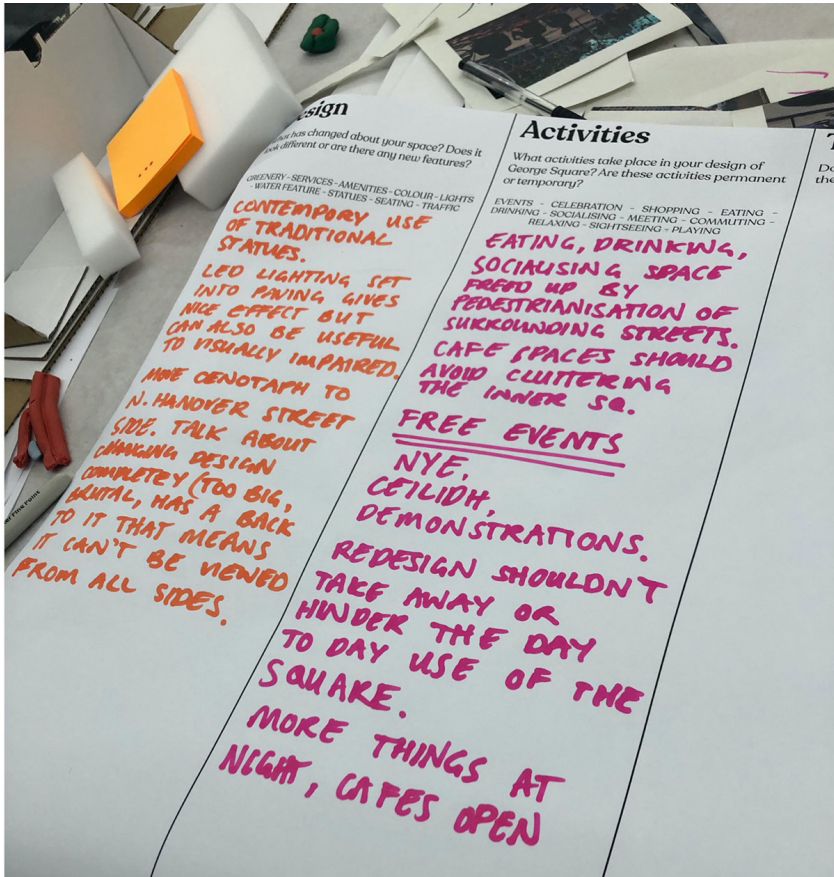 esign
hat has changed about your space? Does it
ook different or are there any new features?
GREENERY - SERVICES - AMENITIES - COLOUR - LIGHTS
- WATER FEATURE - STATUES - SEATING - TRAFFIC
CONTEMPORY USE
OF TRADITIONAL
STATUES.
LED LIGHTING SET
INTO PAVING GIVES
NICE EFFECT BUT
CAN ALSO BE USEFUL
TO VISUALLY IMPAIRED.
MOVE CENOTAPH TO
N. HANOVER STREET
SIDE. TALK ABOUT
CHANGING DESIGN
COMPLETELY (TOO BIG,
BRUTAL, HAS A BACK
TO IT THAT MEANS
IT CAN'T BE VIEWED
FROM ALL SIDES.
Activities
What activities take place in your design of
George Square? Are these activities permanent
or temporary?
EVENTS - CELEBRATION - SHOPPING - EATING -
DRINKING - SOCIALISING - MEETING - COMMUTING -
RELAXING - SIGHTSEEING - PLAYING
EATING, DRINKING,
SOCIALISING SPACE
FREED UP BY
PEDESTRIANISATION OF
SURROUNDING STREETS.
CAFE SPACES SHOULD
AVOID CLUTTERING
THE INNER SQ.
FREE EVENTS
NYE,
CEILIDH,
DEMONSTRATIONS.
REDESIGN SHOULDN'T
TAKE AWAY OR
HINDER THE DAY
TO DAY USE OF THE
SQUARE.
MORE THINGS AT
NIGHT, CAFES OPEN
T
Do
the